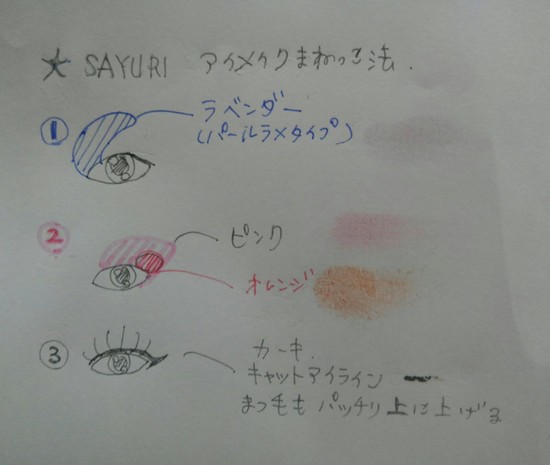 ★ SAYURI アイメイクまねっこ法.
① ラベンダー
(パールラメタイプ)
② ピンク
オレンジ
③ カーキ.
キャットアイライン
まつ毛も パッチリ上に上げる